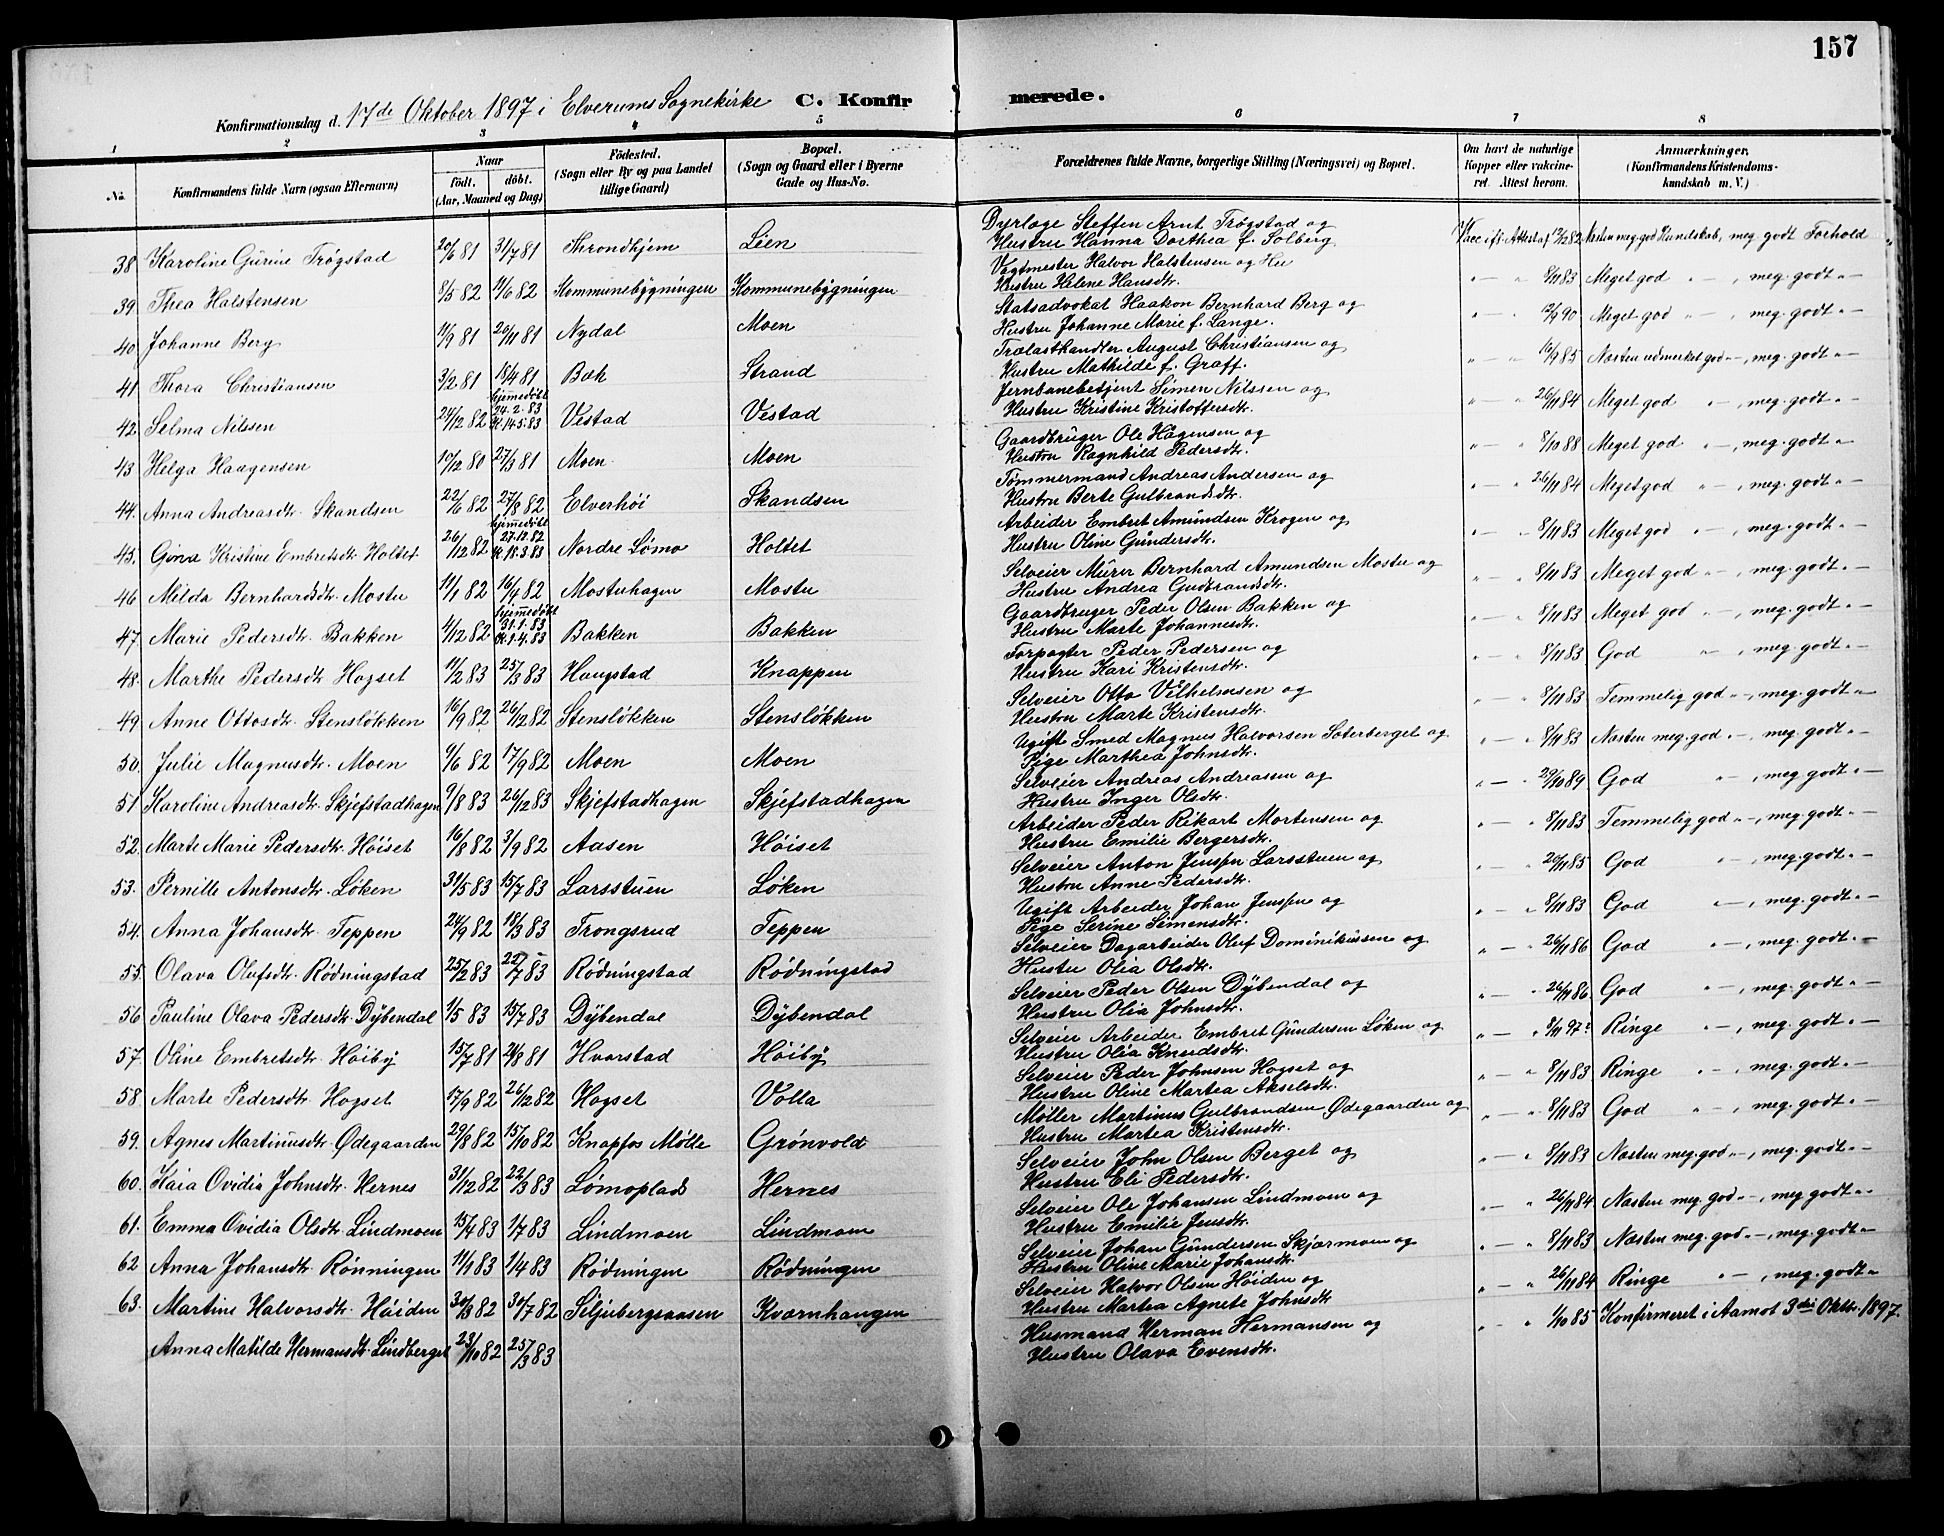 157
Konfirmationsdag d. 17de Oktober 1897 i Elverums Sognekirke C. Konfirmerede.
1 2 3 4 5 6 7 8
No. Konfirmandens fulde Navn (ogsaa Efternavn) Naar födt. döbt. (Aar, Maaned og Dag) Födested. (Sogn eller By og paa Landet tillige Gaard) Bopæl. (Sogn og Gaard eller i Byerne Gade og Hus-No. Forældrenes fulde Navne, borgerlige Stilling (Næringsvei) og Bopæl. Om havt de naturlige Kopper eller vakcineret. Attest herom. Anmærkninger. (Konfirmandens Kristendomskundskab m. V.)
38. Karoline Gurine Trøgstad 20/6 81 31/7 81 Throndhjem Lien Dyrlæge Steffen Arnt Trøgstad og Hustru Hanna Dorthea f. Solberg Vacc. ifl. Attest af 13/12 82 Næsten meg. god Kundskab, meg. godt Forhold
39. Thea Halstensen 8/5 82 11/6 82 Kommunebygningen Kommunebygningen Vagtmester Halvor Halstensen og Hu Hustru Helene Hansdtr. " — " 8/11 83 Meget god " —, meg. godt " —
40. Johanne Berg 11/9 81 20/11 81 Nydal Moen Statsadvokat Haakon Bernhard Berg og Hustru Johanne Marie f. Lange. " — " 12/9 90 Meget god " —, meg. godt " —
41. Thora Christiansen 3/2 81 18/4 81 Bæk Strand Trælasthandler August Christiansen og Hustru Mathilde f. Graff. " — " 16/9 85 Næsten udmerket god " —, meg. godt " —
42. Selma Nilssen 24/12 82 hjemedöbt 24.2.83 K. 14.5.83 Vestad Vestad Jernbanebetjent Simen Nilssen og Hustru Kristine Kristoffersdtr. " — " 26/11 84 Meget god " —, meg. godt " —
43. Helga Haagensen 10/12 80 27/3 81 Moen Moen Gaardbruger Ole Hågensen og Hustru Ragnhild Pedersdtr. " — " 8/10 88 Meget god " —, meg. godt " —
44. Anna Andreasdtr. Skandsen 22/6 82 27/8 82 Elverhöi Skandsen Tømmermand Andreas Andersen og Hustru Berte Gulbrandsdtr. " — " 26/11 84 Meget god " —, meg. godt " —
45. Gina Kristine Embretsdtr. Holtet 26/12 82 hjemedöbt 27.12.82 K. 18.3.83 Nordre Lømo Holtet Arbeider Embret Amundsen Krogen og Hustru Oline Gundersdtr. " — " 8/11 83 Meget god " —, meg. godt " —
46. Milda Bernhardsdtr. Mostu 11/1 82 16/4 82 Mostuhagen Mostu Selveier Murer Bernhard Amundsen Mostu og Hustru Andrea Gudbrandsdtr. " — " 8/11 83 Meget god " —, meg. godt " —
47. Marie Pedersdtr. Bakken 4/12 82 hjemedöbt 31.1.83 K. 1.4.83 Bakken Bakken Gaardbruger Peder Olsen Bakken og Hustru Marte Johannesdtr. " — " 8/11 83 Meget god " —, meg. godt " —
48. Marthe Pedersdtr. Hogset 11/2 83 25/3 83 Haugstad Knappen Forpagter Peder Pedersen og Hustru Kari Kristensdtr. " — " 8/11 83 God " —, meg. godt " —
49. Anne Ottosdtr. Stensløkken 16/9 82 26/12 82 Stensløkken Stensløkken Selveier Otto Vilhelmsen og Hustru Marte Kristensdtr. " — " 8/11 83 Temmelig god " —, meg. godt " —
50. Julie Magnusdtr. Moen 9/6 82 17/9 82 Moen Moen Ugift Smed Magnus Halvorsen Sæterberget og Pige Marthea Johnsdtr. " — " 8/11 83 Næsten meg. god " —, meg. godt " —
51. Karoline Andreasdtr. Skjefstadhagen 9/8 83 26/12 83 Skjefstadhagen Skjefstadhagen Selveier Andreas Andreassen og Hustru Inger Olsdtr. " — " 29/10 89 God " —, meg. godt " —
52. Marte Marie Pedersdtr. Höiset 16/8 82 3/9 82 Aasen Höiset Arbeider Peder Rikart Mortensen og Hustru Emilie Bergersdtr. " — " 8/11 83 Temmelig god " —, meg. godt " —
53. Pernille Antonsdtr. Løken 31/5 83 15/7 83 Larsstuen Løken Selveier Anton Jensen Larsstuen og Hustru Anne Pedersdtr. " — " 20/11 85 God " —, meg. godt " —
54. Anna Johansdtr. Teppen 24/9 82 18/3 83 Trongsrud Teppen Ugift Arbeider Johan Jensen og Pige Serine Simensdtr. " — " 8/11 83 God " —, meg. godt " —
55. Olava Olufsdtr. Rödningstad 25/2 83 22/7 83 Rödningstad Rödningstad Selveier Dagarbeider Oluf Dominikussen og Hustu Olia Olsdtr. " — " 26/11 86 God " —, meg. godt " —
56. Pauline Olava Pedersdtr. Dÿbendal 1/5 83 15/7 83 Dÿbendal Dÿbendal Selveier Peder Olsen Dÿbendal og Hustru Olia Johnsdtr. " — " 26/11 86 God " —, meg. godt " —
57. Oline Embretsdtr. Höiby 15/7 81 21/8 81 Hvarstad Höiby Selveier Arbeider Embret Gundersen Løken og Hustru Olia Knudsdtr. " — " 9/11 97 Ringe " —, meg. godt " —
58. Marte Pedersdtr. Hogset 17/9 82 26/12 82 Hogset Volla Selveier Peder Johnsen Hogset og Hustru Oline Martea Akselsdtr. " — " 8/11 83 Ringe " —, meg. godt " —
59. Agnes Martinusdtr. Ødegaarden 29/8 82 15/10 82 Knapfos Mølle Grönvold Møller Martinus Gulbrandsen Ødegaarden og Hustru Martea Kristensdtr. " — " 8/11 83 God " —, meg. godt " —
60. Kaia Ovidia Johnsdtr. Hernes 31/12 82 22/3 83 Lømoplads Hernes Selveier John Olsen Berget og Hustru Eli Pedersdtr. " — " 8/11 83 Næsten meg. god " —, meg. godt " —
61. Emma Ovidia Olsdtr. Lindmoen 15/4 83 1/7 83 Lindmoen Lindmoen Selveier Ole Johansen Lindmoen og Hustru Emilie Jensdtr. " — " 26/11 84 Næsten meg. god " —, meg. godt " —
62 Anna Johansdtr. Rönningen 11/1 83 1/4 83 Rödningen Rödningen Selveier Johan Gundersen Skjærmoen og Hustru Oline Marie Johansdtr. " — " 8/11 83 Næsten meg. god " —, meg. godt " —
63. Martine Halvorsdtr. Höiden 30/3 82 30/7 82 Siljubergsaasen Kværnhaugen Selveier Halvor Olsen Höiden og Hustru Martea Agnete Johnsdtr. " — " 26/11 84 Ringe " —, meg. godt "
Anna Matilde Hermansdtr. Lindberget 23/10 82 25/3 83 Husmand Herman Hermansen og Hustru Olava Evensdtr. " — " 1/10 85 Konfirmeret i Aamot 3die Oktbr. 1897.